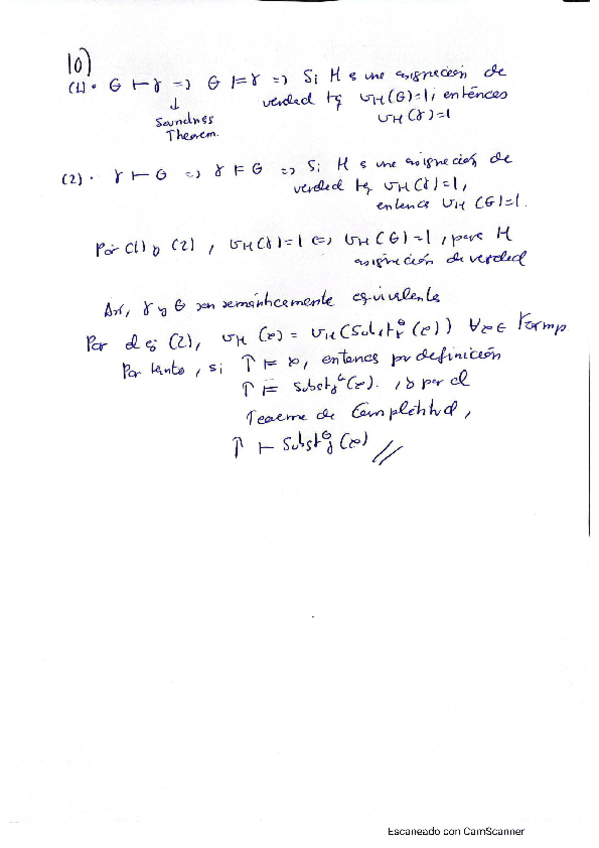 10)
(1) · G ⊢ γ => G ⊨ γ => Si H es una asignación de
↓ verdad tq υH(G)=1, entonces
Soundness υH(γ)=1
Theorem.
(2) · γ ⊢ G => γ ⊨ G => Si H es una asignación de
verdad tq υH(γ)=1,
entonces υH(G)=1.
Por (1) y (2), υH(γ)=1 <=> υH(G)=1, para H
asignación de verdad
Así, γ y G son semánticamente equivalentes
Por el ej (2), υH(α) = υH(Subst (α)) ∀α∈ Formp
Por tanto, si Γ ⊨ α, entonces por definición
Γ ⊨ Subst (α). , y por el
Teorema de Completitud,
Γ ⊢ Subst (α) //
Escaneado con CamScanner